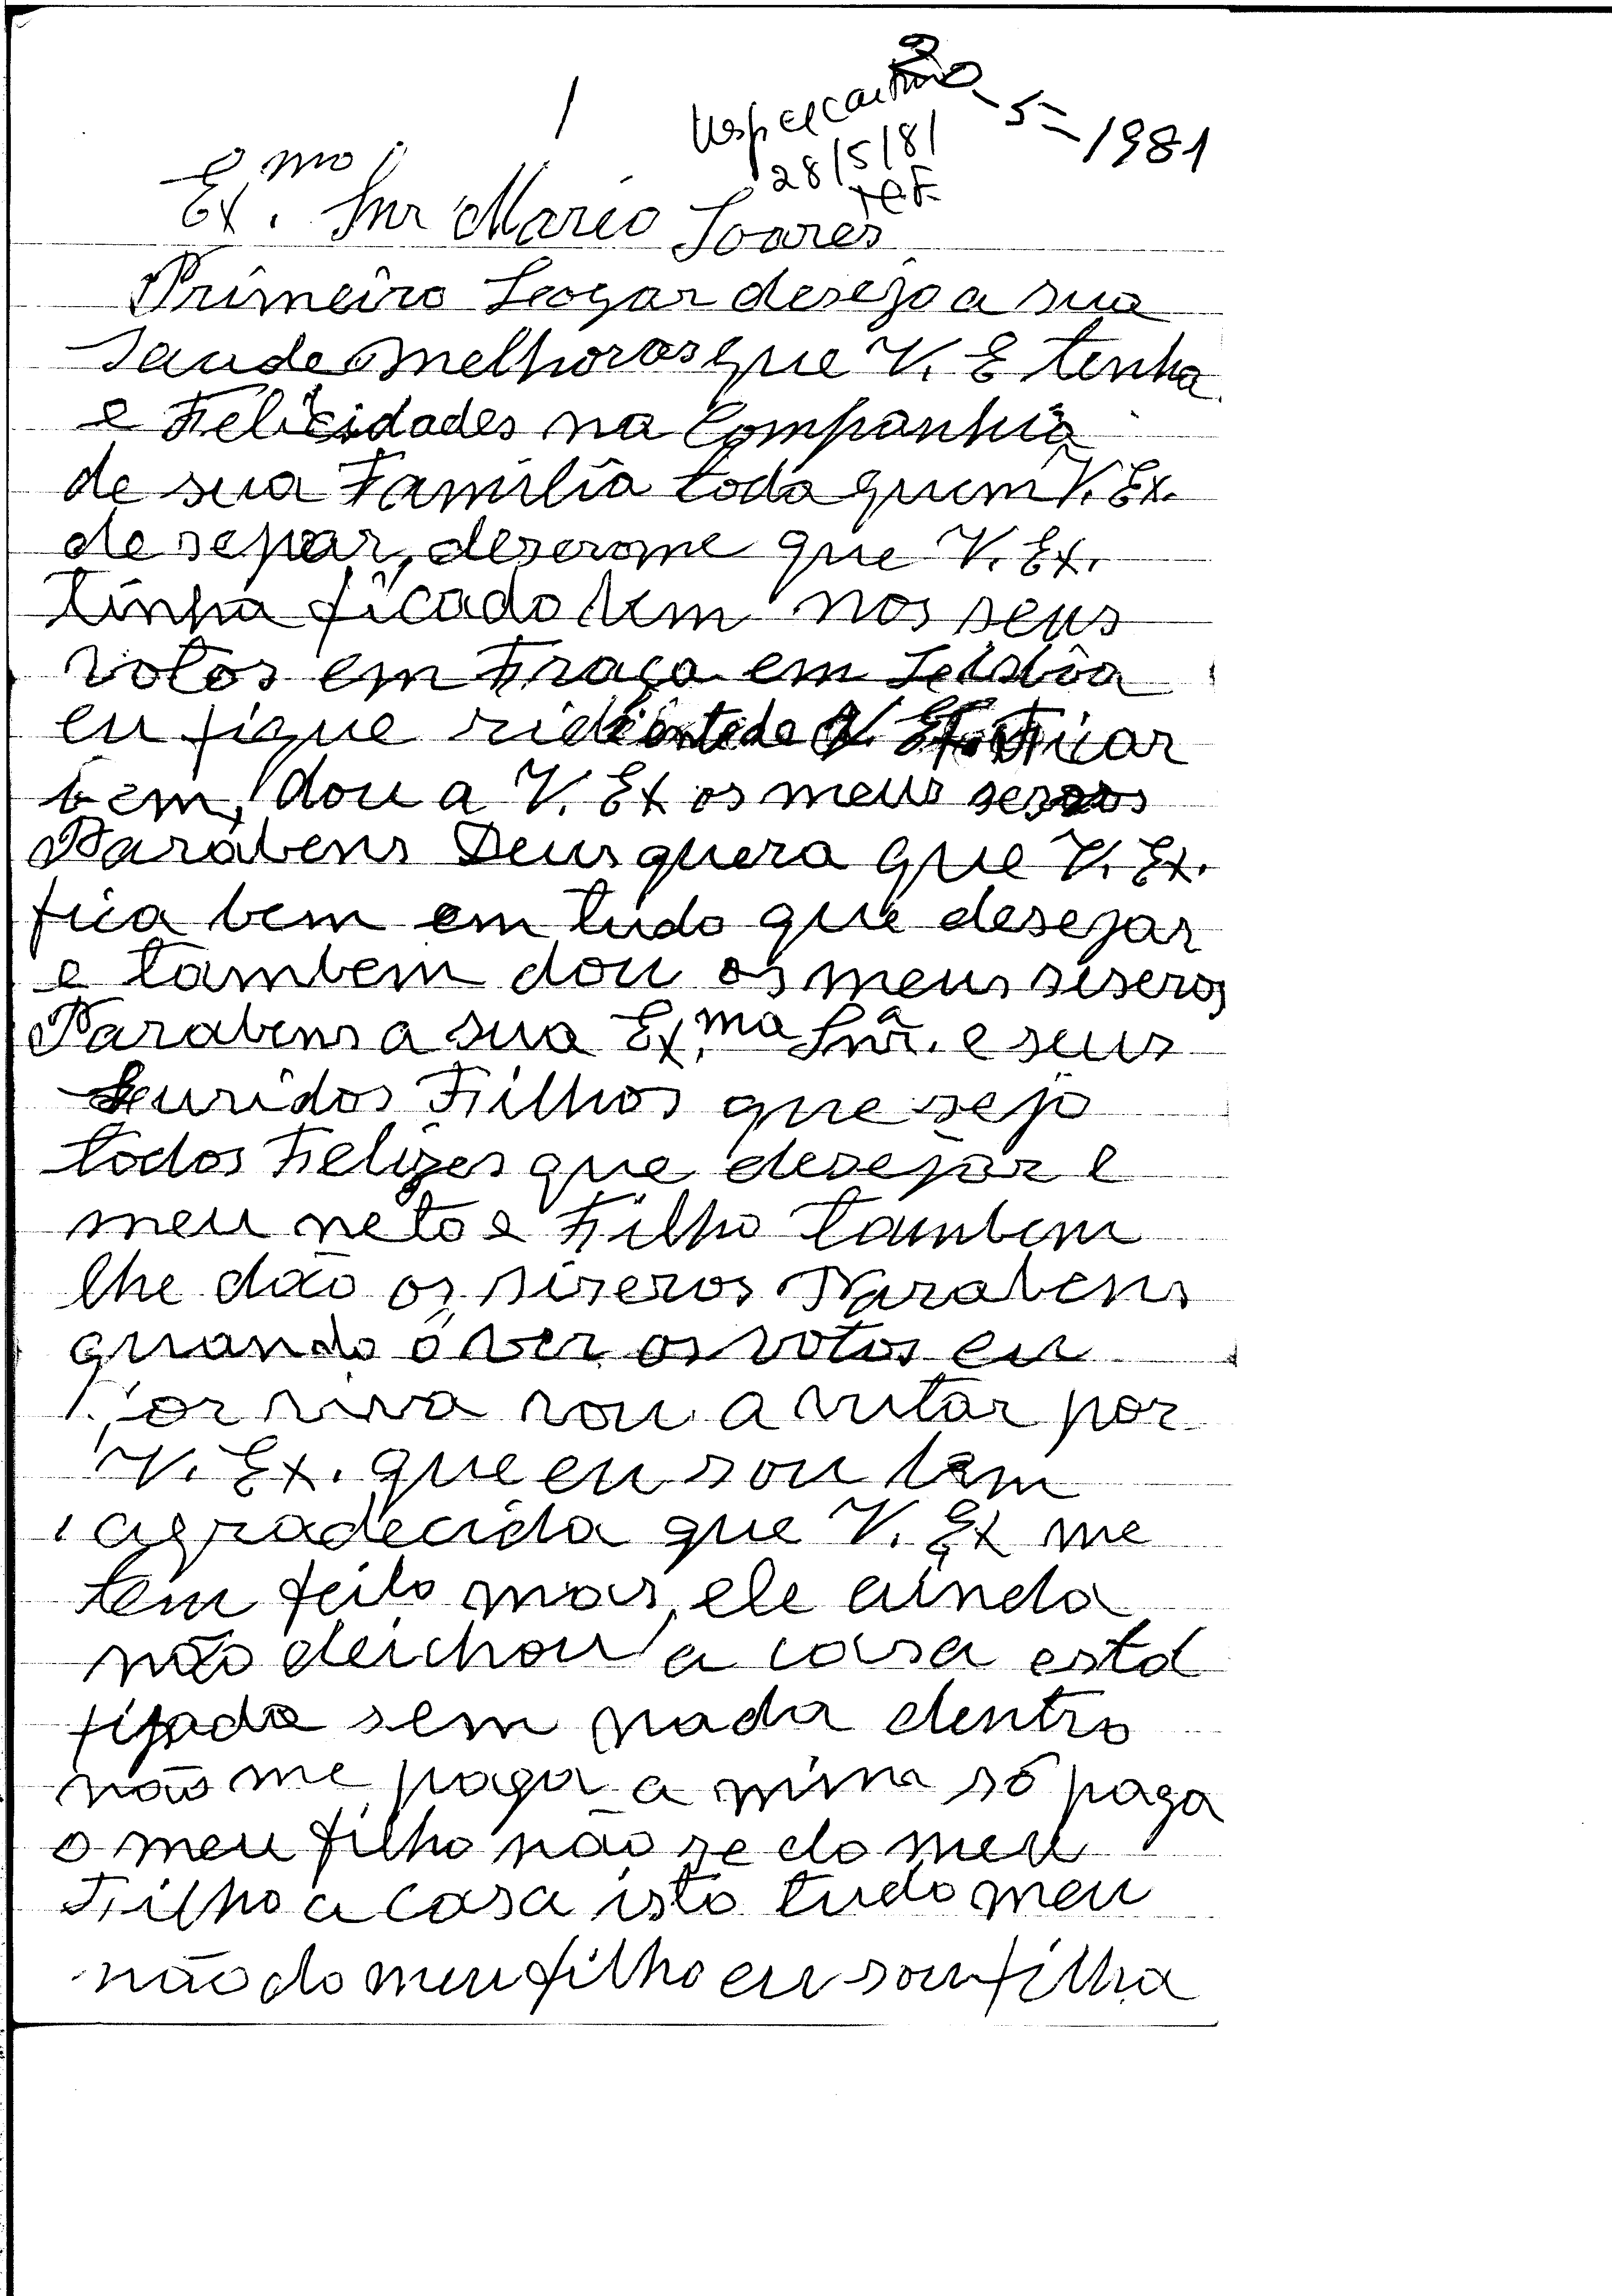 20-5=1981
1
28/5/81
Ex.mo Snr Mario Soares
Primeiro Leogar desejo a sua
saude melhoras que V. E tenha
e Felicidades na Companhia
de sua Familia toda quem V. Ex.
desejar, deserome que V. Ex.
tinha ficado bem nos seus
votos em Fraça em Leisbôa
eu fique V. Ex. Ficar
bem, dou a V. Ex os meus
Parabens Deus quera que V. Ex.
fica bem em tudo que desejar
e tambem dou os meus siseros
Parabens a sua Ex.ma Snrª. e seus
Filhos que seja
todos Felizes que desejar e
meu neto e Filho tambem
lhe dão os siseros Parabens
quando ó ver os votos eu
viva vou a vutar por
V. Ex. que eu sou bem
agradecida que V. Ex me
tem feito mas, ele ainda
não deichou a casa está
fijada sem nada dentro
não me paga a mima só paga
o meu filho não se do meu
Filho a casa isto tudo meu
não do meu filho eu sou filha